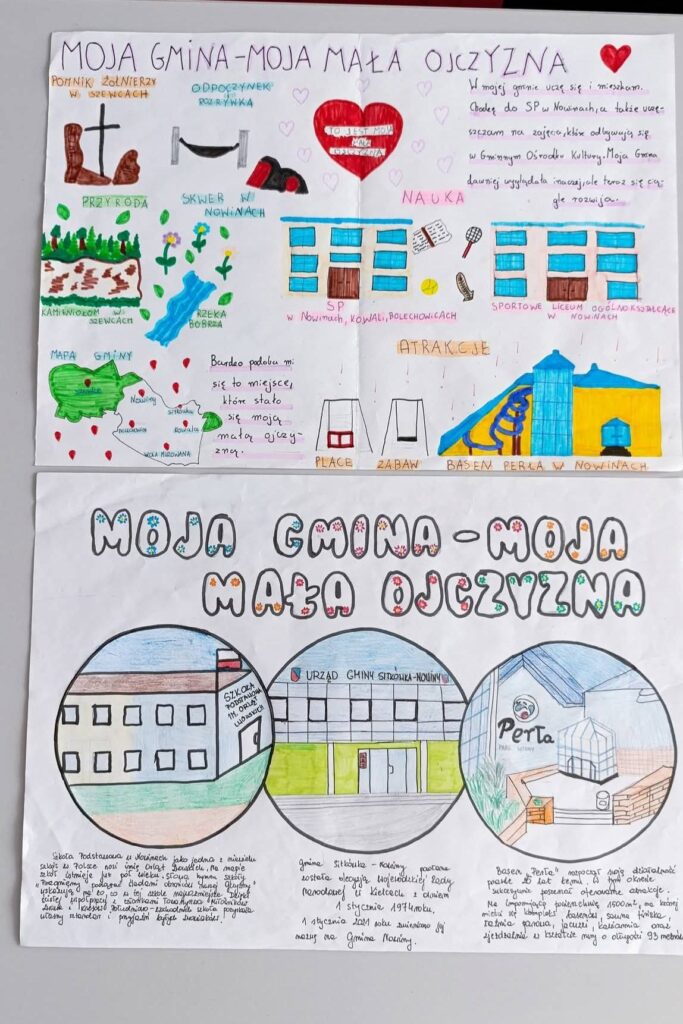 MOJA GMINA - MOJA MAŁA OJCZYZNA
POMNIK ŻOŁNIERZY
W SZEWCACH
ODPOCZYNEK
I
ROZRYWKA
TO JEST MOJA
MAŁA
OJCZYZNA
W mojej gminie uczę się i mieszkam.
Chodzę do SP w Nowinach, a także uczę-
szczam na zajęcia, które odbywają się
w Gminnym Ośrodku Kultury. Moja Gmina
dawniej wyglądała inaczej, ale teraz się cią-
gle rozwija.
PRZYRODA
SKWER W
NOWINACH
NAUKA
KAMIENIOŁOM W
SZEWCACH
RZEKA
BOBRZA
SP
W NOWINACH, KOWALI, BOLECHOWICACH
SPORTOWE LICEUM OGÓLNOKSZTAŁCĄCE
W NOWINACH
MAPA GMINY
NOWINY
SITKÓWKA
BOLECHOWICE
KOWALA
WOLA MUROWANA
Bardzo podoba mi
się to miejsce,
które stało
się moją
małą ojczy-
zną.
ATRAKCJE
PLACE ZABAW
BASEN PERŁA W NOWINACH
MOJA GMINA - MOJA
MAŁA OJCZYZNA
SZKOŁA
PODSTAWOWA
IM. ORLĄT
LWOWSKICH
URZĄD GMINY SITKÓWKA-NOWINY
Perła
PARK WODNY
Szkoła Podstawowa w Nowinach jako jedna z niewielu
szkół w Polsce nosi imię Orląt Lwowskich. Na mapie
szkół istnieje już pół wieku. Słowa hymnu szkoły
"Pragniemy podążać śladami obrońców
wskazują na to, co w tej szkole najważniejsze. Dzięki
ścisłej współpracy z członkami Towarzystwa Miłośników
Lwowa i Kresów Południowo-Wschodnich szkoła pozyskała
własny sztandar i przyjęła imię
gmina Sitkówka - Nowiny powstała
została decyzją Wojewódzkiej Rady
Narodowej w Kielcach z dniem
1 stycznia 1974 roku.
1 stycznia 2021 roku zmieniono jej
nazwę na Gmina Nowiny.
Basen "Perła" rozpoczął swoją działalność
prawie 10 lat temu. W tym okresie
poszerzał oferowane atrakcje.
Na imponującej powierzchni 1500m², na której
mieści się kompleks basenów, sauna fińska,
łaźnia parowa, jacuzzi, kawiarnia oraz
zjeżdżalnia w kształcie rury o długości 93 metrów